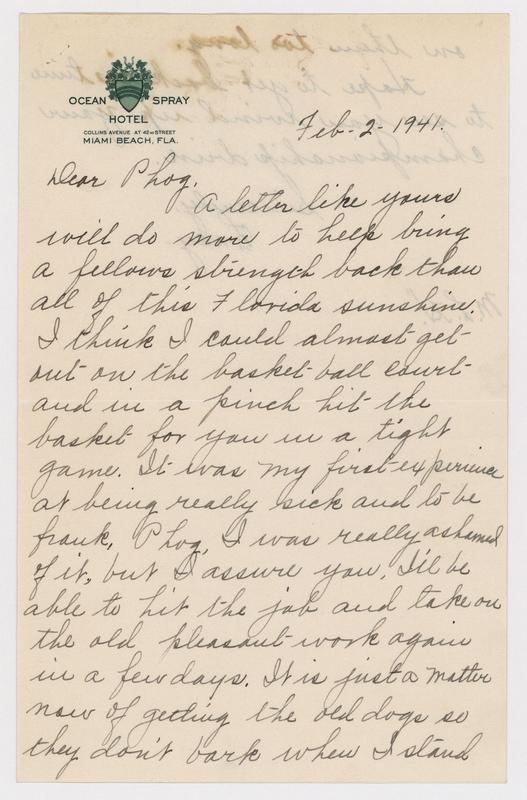 OCEAN SPRAY
HOTEL
COLLINS AVENUE AT 42ND STREET
MIAMI BEACH, FLA.
Feb-2-1941.
Dear Phog,
A letter like yours
will do more to help bring
a fellows strength back than
all of this Florida sunshine.
I think I could almost get
out on the basket-ball court
and in a pinch hit the
basket for you in a tight
game. It was my first experience
at being really sick and to be
frank, Phog, I was really ashamed
of it, but I assure you, I'll be
able to hit the job and take on
the old pleasant work again
in a few days. It is just a matter
now of getting the old dogs so
they don't bark when I stand
on them too long.
Hope to get back in time
to
championship drive